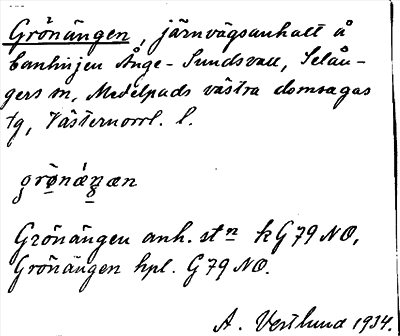 Grönängen, järnvägsanhalt å
banlinjen Ånge - Sundsvall, Selån-
gers sn, Medelpads västra domsagas
tg, Västernorrl. l.
grönä́ŋæn
Grönängen anh. stn k G 79 NO,
Grönängen hpl. G 79 NO.
A. Vestlund 1934.